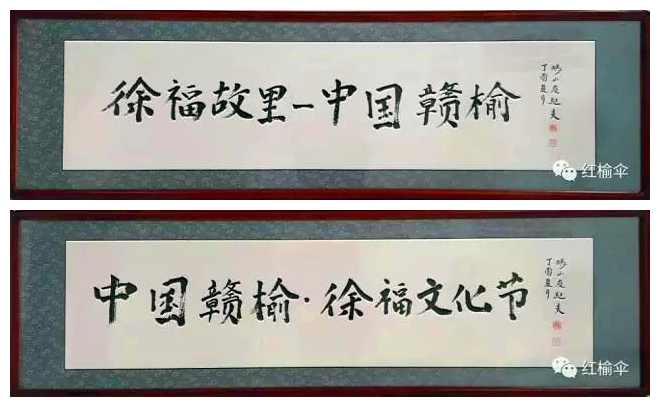 徐福故里－中国赣榆
丁酉夏月
红榆伞
中国赣榆·徐福文化节
丁酉夏月
红榆伞